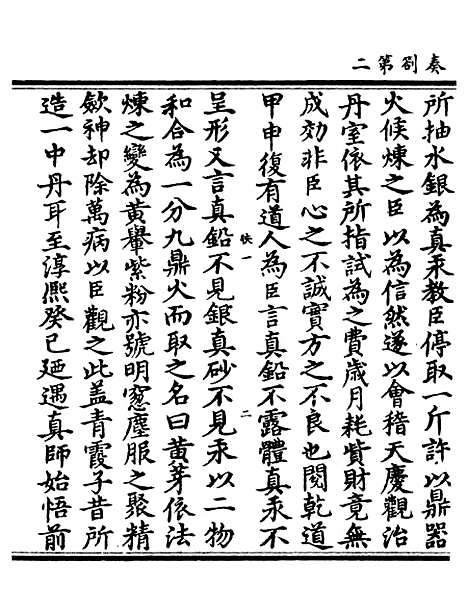 奏劄第二
所抽水銀為真汞教臣停取一斤許以鼎器
火候煉之臣以為信然遂以會稽天慶觀治
丹室依其所指試為之費歲月耗貲財竟無
成効非臣心之不誠實方之不良也閱乾道
甲申復有道人為臣言真鉛不露體真汞不
帙一 二
呈形又言真鉛不見銀真砂不見汞以二物
和合為一分九鼎火而取之名曰黃芽依法
煉之變為黃轝紫粉亦號明窻塵服之聚精
歛神却除萬病以臣觀之此盖青霞子昔所
造一中丹耳至淳熈癸巳廼遇真師始悟前